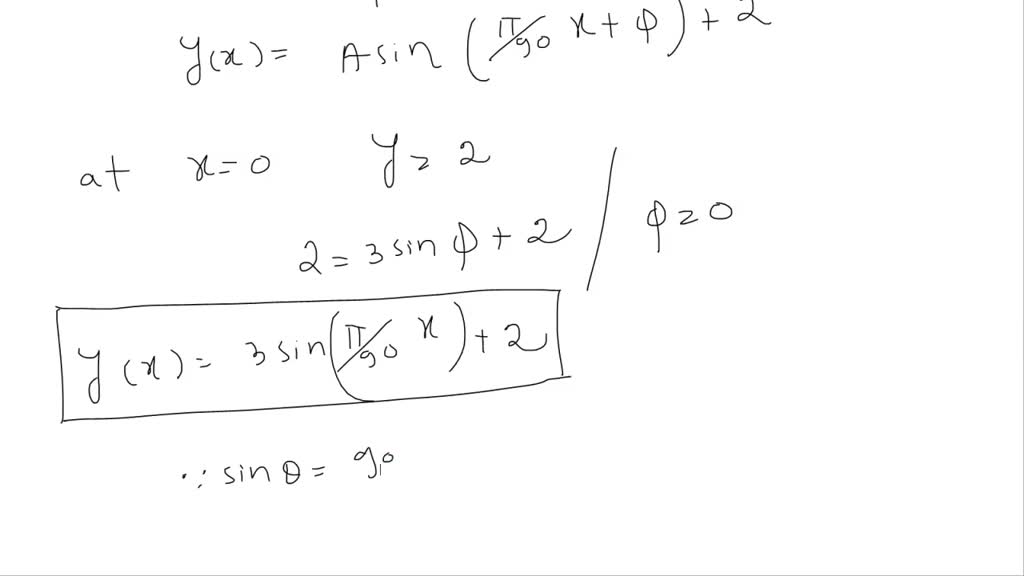 y(x) = A sin (π/90 x + φ) + 2
at x = 0 y = 2
2 = 3 sin φ + 2 / φ = 0
y(x) = 3 sin (π/90 x) + 2
∵ sin θ = 90